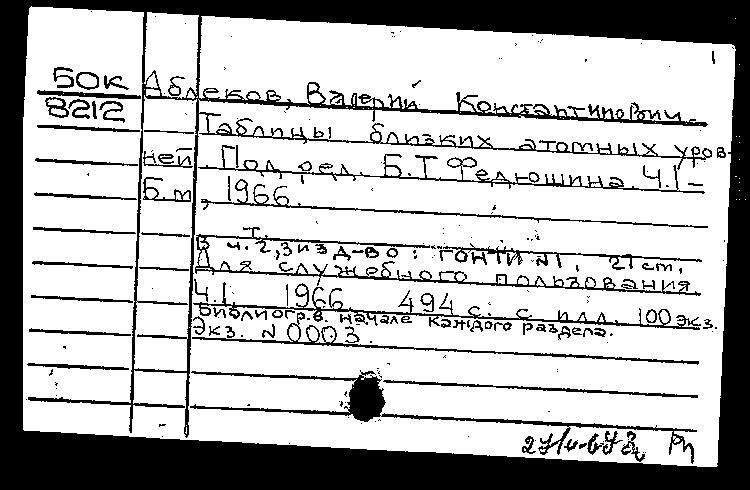 1
БОК Аблеков, Валерий Константинович.-
8212
Таблицы близких атомных уров-
ней. Под ред. Б.Т Федюшина. Ч.1-
Б.м, 1966.
т.
В ч.2,3 изд-во: ГОНТИ №1, 27 см.
Для служебного пользования
Ч.1. 1966. 494 с. с илл. 100 экз.
Библиогр. в. начале каждого раздела.
Экз. № 0003.